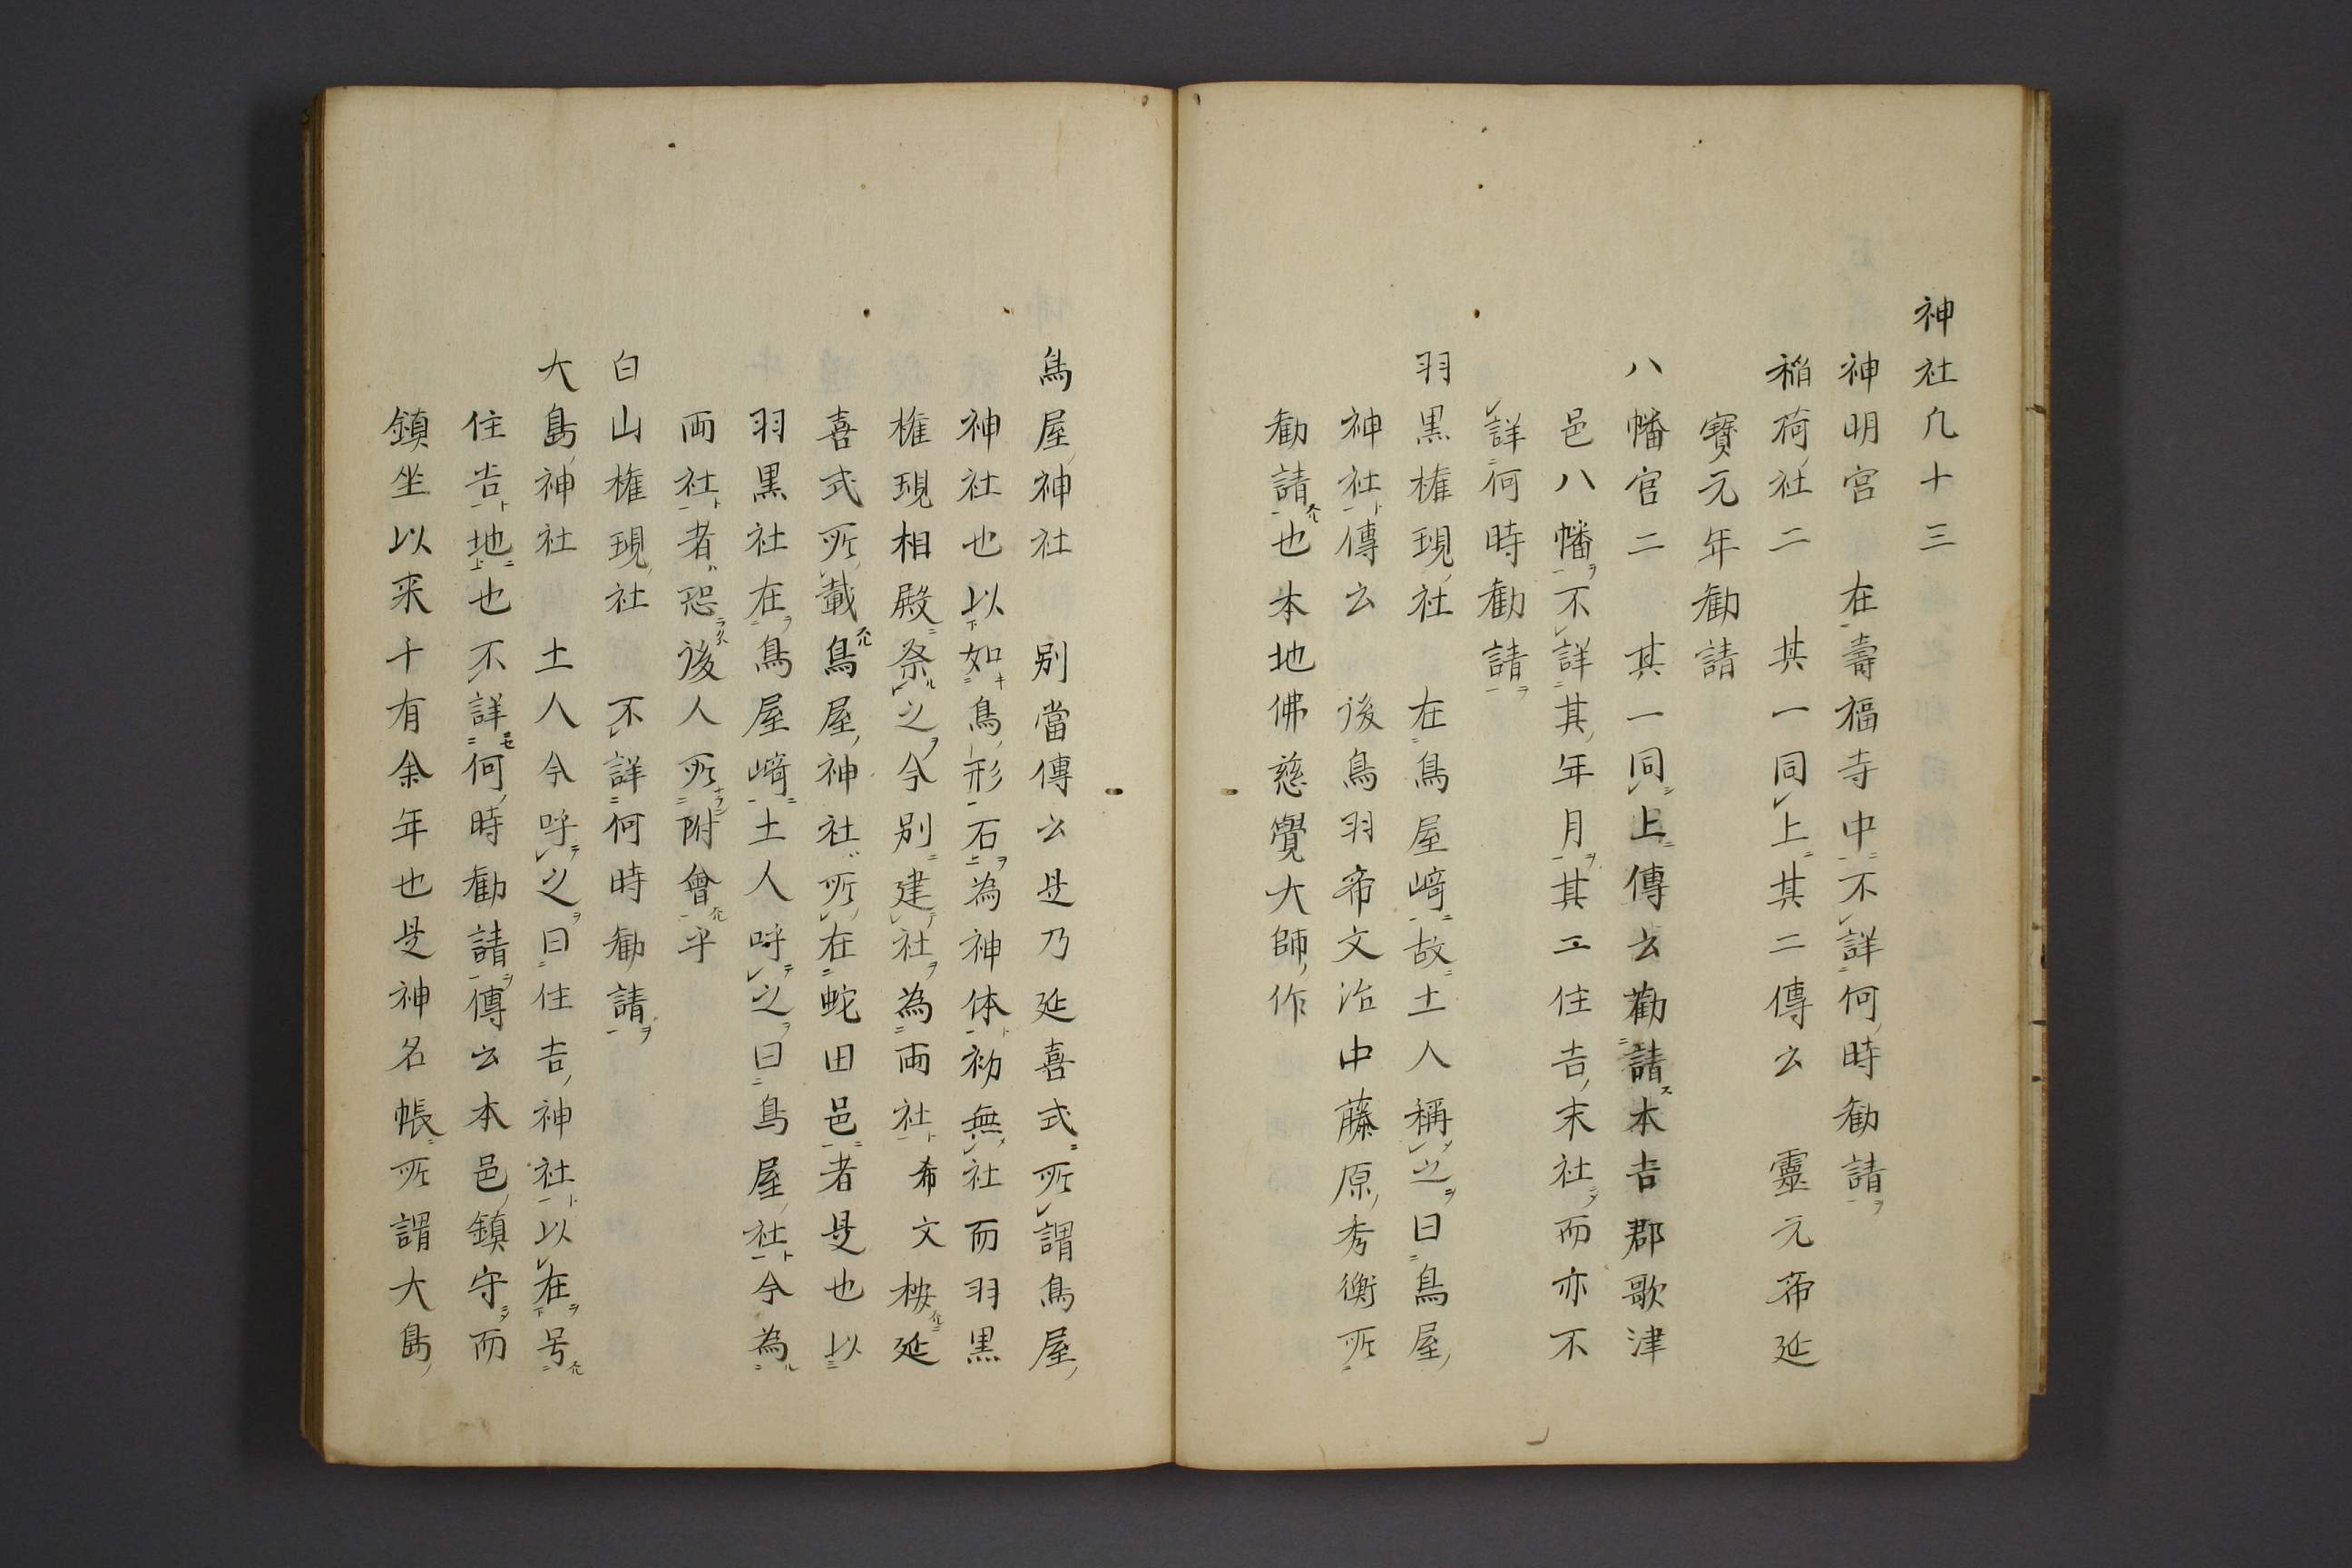 神社凢十三
神明宮 在壽福寺中不詳何時勧請
稲荷社二 其一同上其二傳云 靈元帝延
寶元年勧請
八幡宮二 其一同上傳云勸請本吉郡歌津
邑八幡不詳其年月其二住吉末社而亦不
詳何時勧請
羽黒権現社 在鳥屋﨑故土人稱之曰鳥屋
神社傳云 後鳥羽帝文治中藤原秀衡所
勧請也本地佛慈覺大師作
鳥屋神社 別當傳云是乃延喜式所謂鳥屋
神社也以如鳥形石為神体初無社而羽黒
権現相殿祭之今別建社為両社希文按延
喜式所載鳥屋神社所在蛇田邑者是也以
羽黒社在鳥屋﨑土人呼之曰鳥屋社今為
両社者恐後人所附會乎
白山権現社 不詳何時勧請
大島神社 土人今呼之曰住吉神社以在号
住吉地也不詳何時勧請傳云本邑鎮守而
鎮坐以来千有余年也是神名帳所謂大島